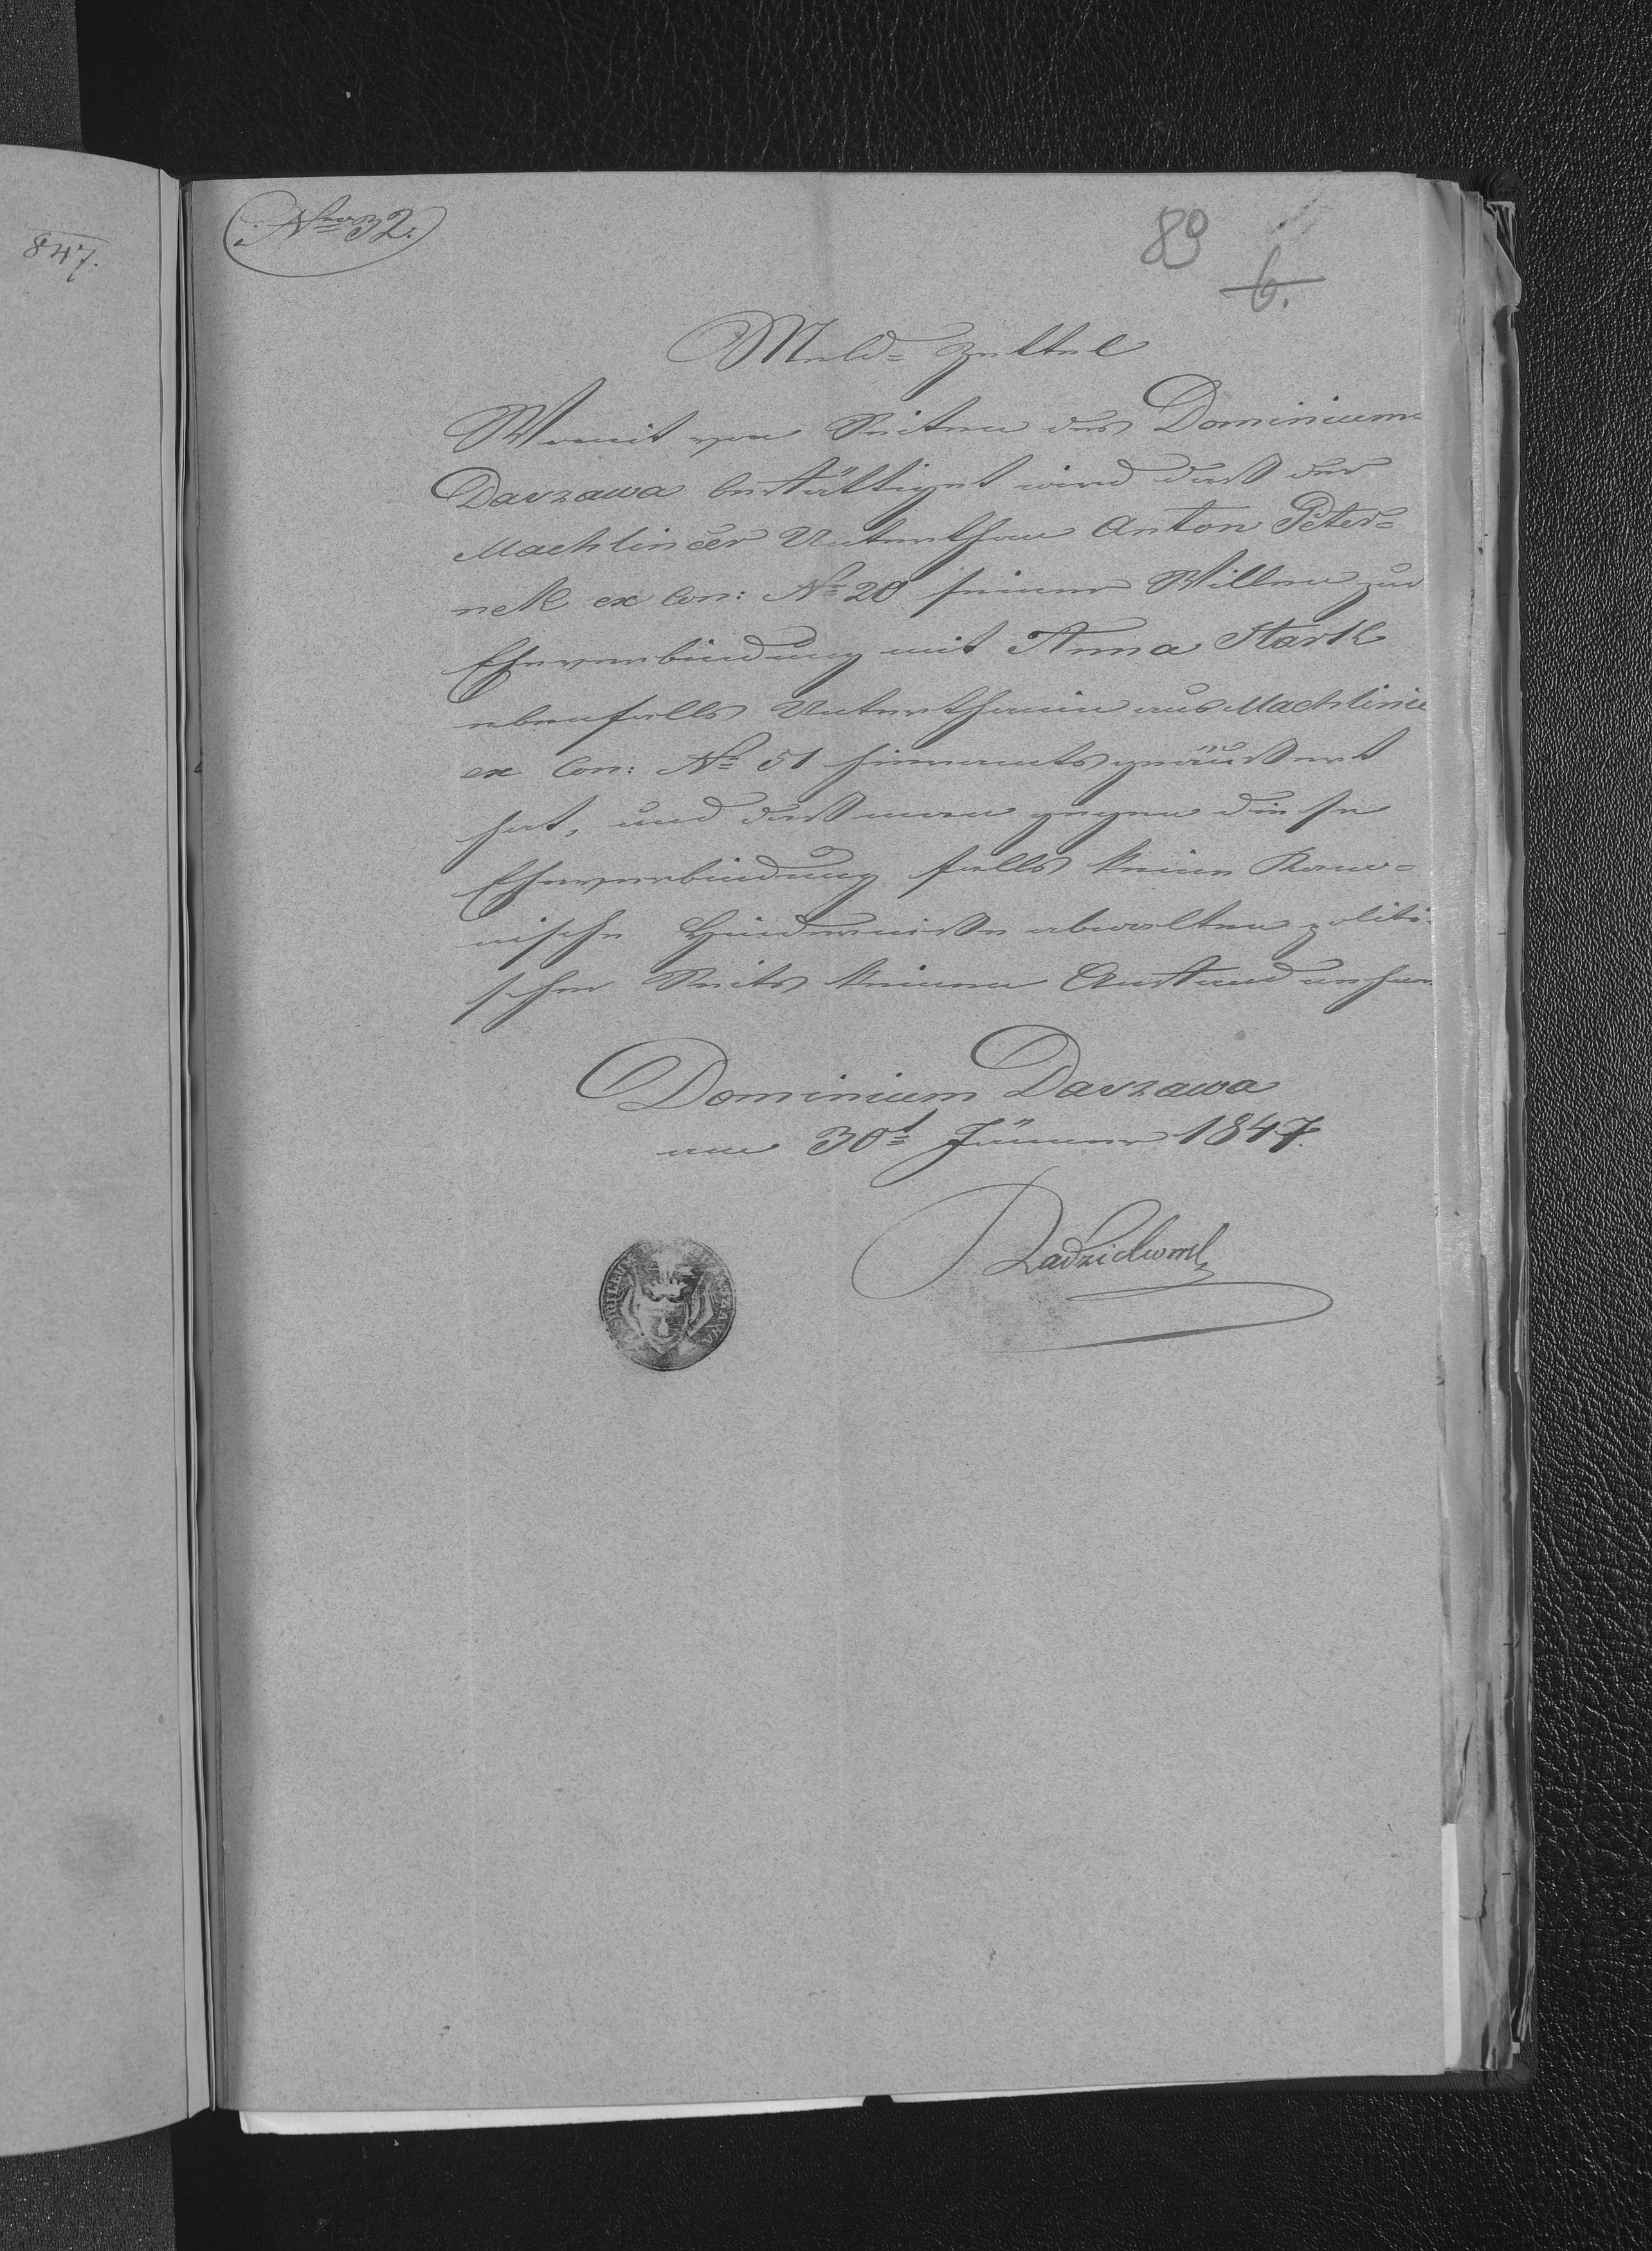 847.
Nro 32.
89
6.
Meld= Zettel
Womit von Seiten des Dominiums
Daszawa bestättiget wird daß der
Machlincer Unterthan Anton Peter=
nek ex Con: No 20 seinen Willen zur
Eheverbindung mit Anna Stark
ebenfalls Unterthanin aus Machlinie
ex Con: No 51 hieramts geäußert
hat, und daß man gegen diese
Eheverbindung falls keine Kano=
nische Hinderniße obwalten politi
scher Seits keinen Anstand
Dominium Daszawa
am 30t Jänner 1847.